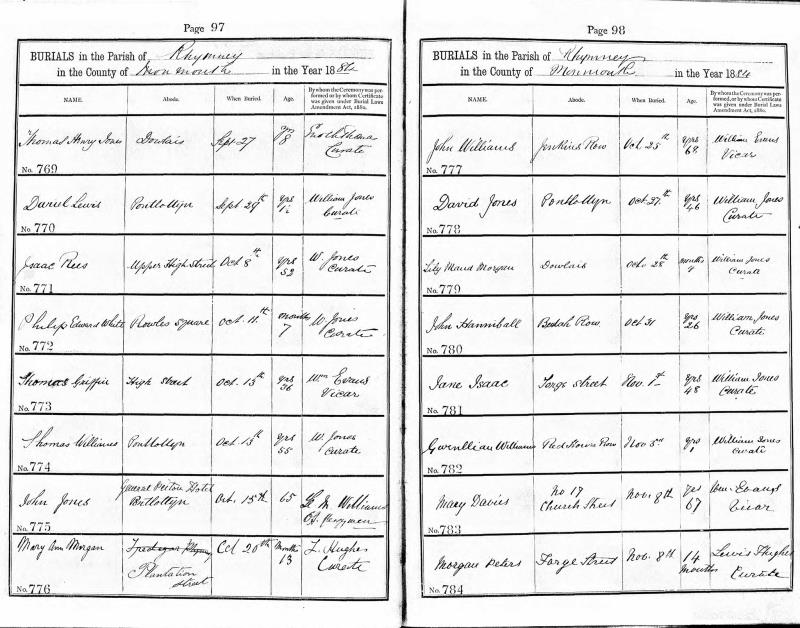 Page 97
BURIALS in the Parish of Rhymney
in the County of Monmouth in the Year 1884
NAME. Abode. When Buried. Age. By whom the Ceremony was performed or by whom Certificate was given under Burial Laws Amendment Act, 1880.
Thomas Henry Jones Dowlais Sept 27 yrs 8 Enoch Curate
No. 769
Daniel Lewis Pontlottyn Sept. 29th yrs William Jones Curate
No. 770
Isaac Rees Upper High Street Oct 8th yrs 52 W. Jones Curate
No. 771
Philip Edward White Rowles Square Oct. 11th months 7 W. Jones Curate
No. 772
Thomas Griffin High Street Oct. 13th yrs 36 Wm Evans Vicar
No. 773
Thomas Williams Pontlottyn Oct. 13th yrs 55 W. Jones Curate
No. 774
John Jones General Picton Hotel Pontlottyn Oct. 15th 65 M. Williams
No. 775
Mary Ann Morgan Plantation Street Oct 20th Months 13 L. Hughes Curate
No. 776
Page 98
BURIALS in the Parish of Rhymney
in the County of Monmouth in the Year 1884
NAME. Abode. When Buried. Age. By whom the Ceremony was performed or by whom Certificate was given under Burial Laws Amendment Act, 1880.
John Williams Jenkins Row Oct. 25th yrs 68 William Evans Vicar
No. 777
David Jones Pontlottyn Oct. 27th yrs 46 William Jones Curate
No. 778
Lily Maud Morgan Dowlais Octo 28th months 4 William Jones Curate
No. 779
John Hanniball Row Oct 31 yrs 26 William Jones Curate
No. 780
Jane Isaac Forge Street Nov. 1st yrs 48 William Jones Curate
No. 781
Gwenllian Williams Row Nov 5th yrs 1 William Jones Curate
No. 782
Mary Davies No 17 Church Street Nov. 8th yrs 67 Wm. Evans Vicar
No. 783
Morgan Peters Forge Street Nov. 8th 14 Months Lewis Hughes Curate
No. 784